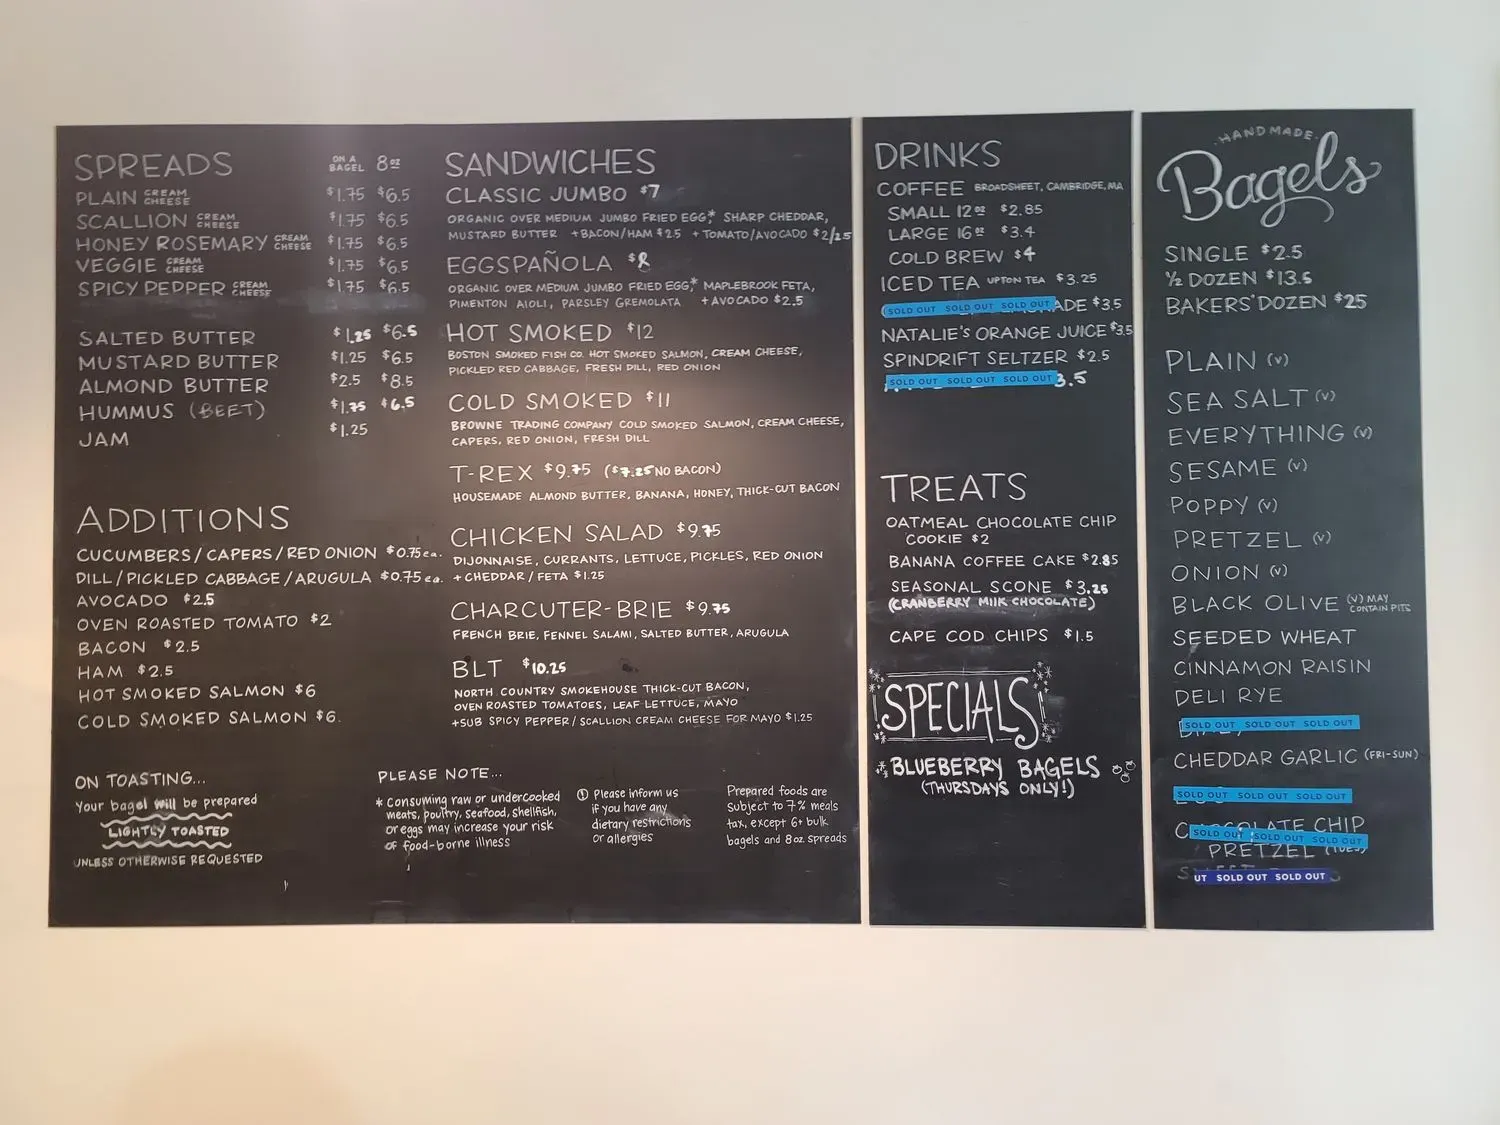 SPREADS ON A BAGEL 8oz
PLAIN CREAM CHEESE $1.75 $6.5
SCALLION CREAM CHEESE $1.75 $6.5
HONEY ROSEMARY CREAM CHEESE $1.75 $6.5
VEGGIE CREAM CHEESE $1.75 $6.5
SPICY PEPPER CREAM CHEESE $1.75 $6.5
SALTED BUTTER $1.25 $6.5
MUSTARD BUTTER $1.25 $6.5
ALMOND BUTTER $2.5 $8.5
HUMMUS (BEET) $1.75 $6.5
JAM $1.25
ADDITIONS
CUCUMBERS/CAPERS/RED ONION $0.75 ea.
DILL/PICKLED CABBAGE/ARUGULA $0.75 ea.
AVOCADO $2.5
OVEN ROASTED TOMATO $2
BACON $2.5
HAM $2.5
HOT SMOKED SALMON $6
COLD SMOKED SALMON $6.
ON TOASTING...
Your bagel will be prepared
LIGHTLY TOASTED
UNLESS OTHERWISE REQUESTED
SANDWICHES
CLASSIC JUMBO $7
ORGANIC OVER MEDIUM JUMBO FRIED EGG,* SHARP CHEDDAR,
MUSTARD BUTTER +BACON/HAM $2.5 +TOMATO/AVOCADO $2/2.5
EGGSPAÑOLA $8
ORGANIC OVER MEDIUM JUMBO FRIED EGG,* MAPLEBROOK FETA,
PIMENTON AIOLI, PARSLEY GREMOLATA +AVOCADO $2.5
HOT SMOKED $12
BOSTON SMOKED FISH CO. HOT SMOKED SALMON, CREAM CHEESE,
PICKLED RED CABBAGE, FRESH DILL, RED ONION
COLD SMOKED $11
BROWNE TRADING COMPANY COLD SMOKED SALMON, CREAM CHEESE,
CAPERS, RED ONION, FRESH DILL
T-REX $9.75 ($7.25 NO BACON)
HOUSEMADE ALMOND BUTTER, BANANA, HONEY, THICK-CUT BACON
CHICKEN SALAD $9.75
DIJONNAISE, CURRANTS, LETTUCE, PICKLES, RED ONION
+ CHEDDAR/FETA $1.25
CHARCUTER-BRIE $9.75
FRENCH BRIE, FENNEL SALAMI, SALTED BUTTER, ARUGULA
BLT $10.25
NORTH COUNTRY SMOKEHOUSE THICK-CUT BACON,
OVEN ROASTED TOMATOES, LEAF LETTUCE, MAYO
+SUB SPICY PEPPER/SCALLION CREAM CHEESE FOR MAYO $1.25
PLEASE NOTE...
* Consuming raw or undercooked
meats, poultry, seafood, shellfish,
or eggs may increase your risk
of food-borne illness
① Please inform us
if you have any
dietary restrictions
or allergies
Prepared foods are
subject to 7% meals
tax, except 6+ bulk
bagels and 8oz spreads
DRINKS
COFFEE BROADSHEET, CAMBRIDGE, MA
SMALL 12oz $2.85
LARGE 16oz $3.4
COLD BREW $4
ICED TEA UPTON TEA $3.25
SOLD OUT SOLD OUT SOLD OUT ADE $3.5
NATALIE'S ORANGE JUICE $3.5
SPINDRIFT SELTZER $2.5
SOLD OUT SOLD OUT SOLD OUT 3.5
TREATS
OATMEAL CHOCOLATE CHIP
COOKIE $2
BANANA COFFEE CAKE $2.85
SEASONAL SCONE $3.25
(CRANBERRY MILK CHOCOLATE)
CAPE COD CHIPS $1.5
SPECIALS
BLUEBERRY BAGELS
(THURSDAYS ONLY!)
HANDMADE
Bagels
SINGLE $2.5
½ DOZEN $13.5
BAKERS' DOZEN $25
PLAIN (V)
SEA SALT (V)
EVERYTHING (V)
SESAME (V)
POPPY (V)
PRETZEL (V)
ONION (V)
BLACK OLIVE (V) MAY CONTAIN PITS
SEEDED WHEAT
CINNAMON RAISIN
DELI RYE
SOLD OUT SOLD OUT SOLD OUT
CHEDDAR GARLIC (FRI-SUN)
SOLD OUT SOLD OUT SOLD OUT
CHOCOLATE CHIP
SOLD OUT SOLD OUT SOLD OUT
PRETZEL (TUES)
UT SOLD OUT SOLD OUT